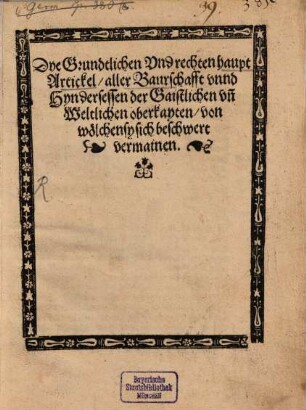 Dye Grundtlichen Vnd rechten haupt
Artickel/ aller Baurschafft vnnd
Hyndersessen der Gaistlichen vñ
Weltlichen oberkayten/ von
wölchen sy sich beschwert
vermainen.
R
Bayerische
Staatsbibliothek
München